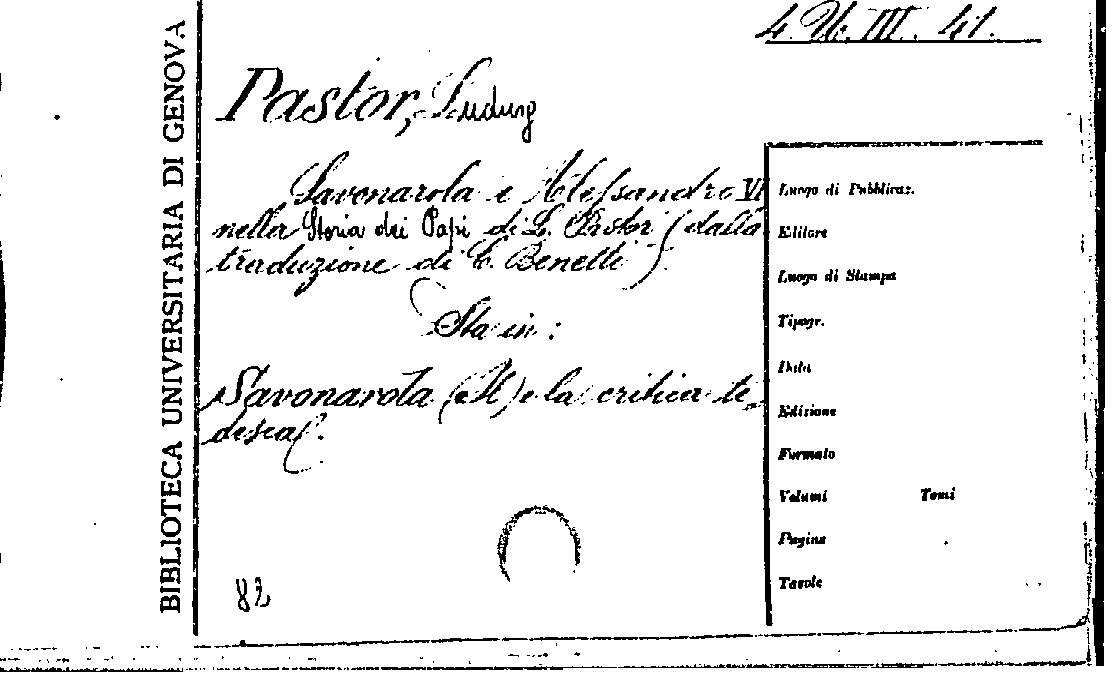 BIBLIOTECA UNIVERSITARIA DI GENOVA
4. U. III. 41.
Pastor, Ludwig
Savonarola e Alessandro VI
nella Storia dei Papi di L. Pastor (dalla
traduzione di C. Benetti).
Sta in:
Savonarola (Il) e la critica te-
desca.
82
Luogo di Pubblicaz.
Editore
Luogo di Stampa
Tipogr.
Data
Edizione
Formato
Volumi Tomi
Pagine
Tavole